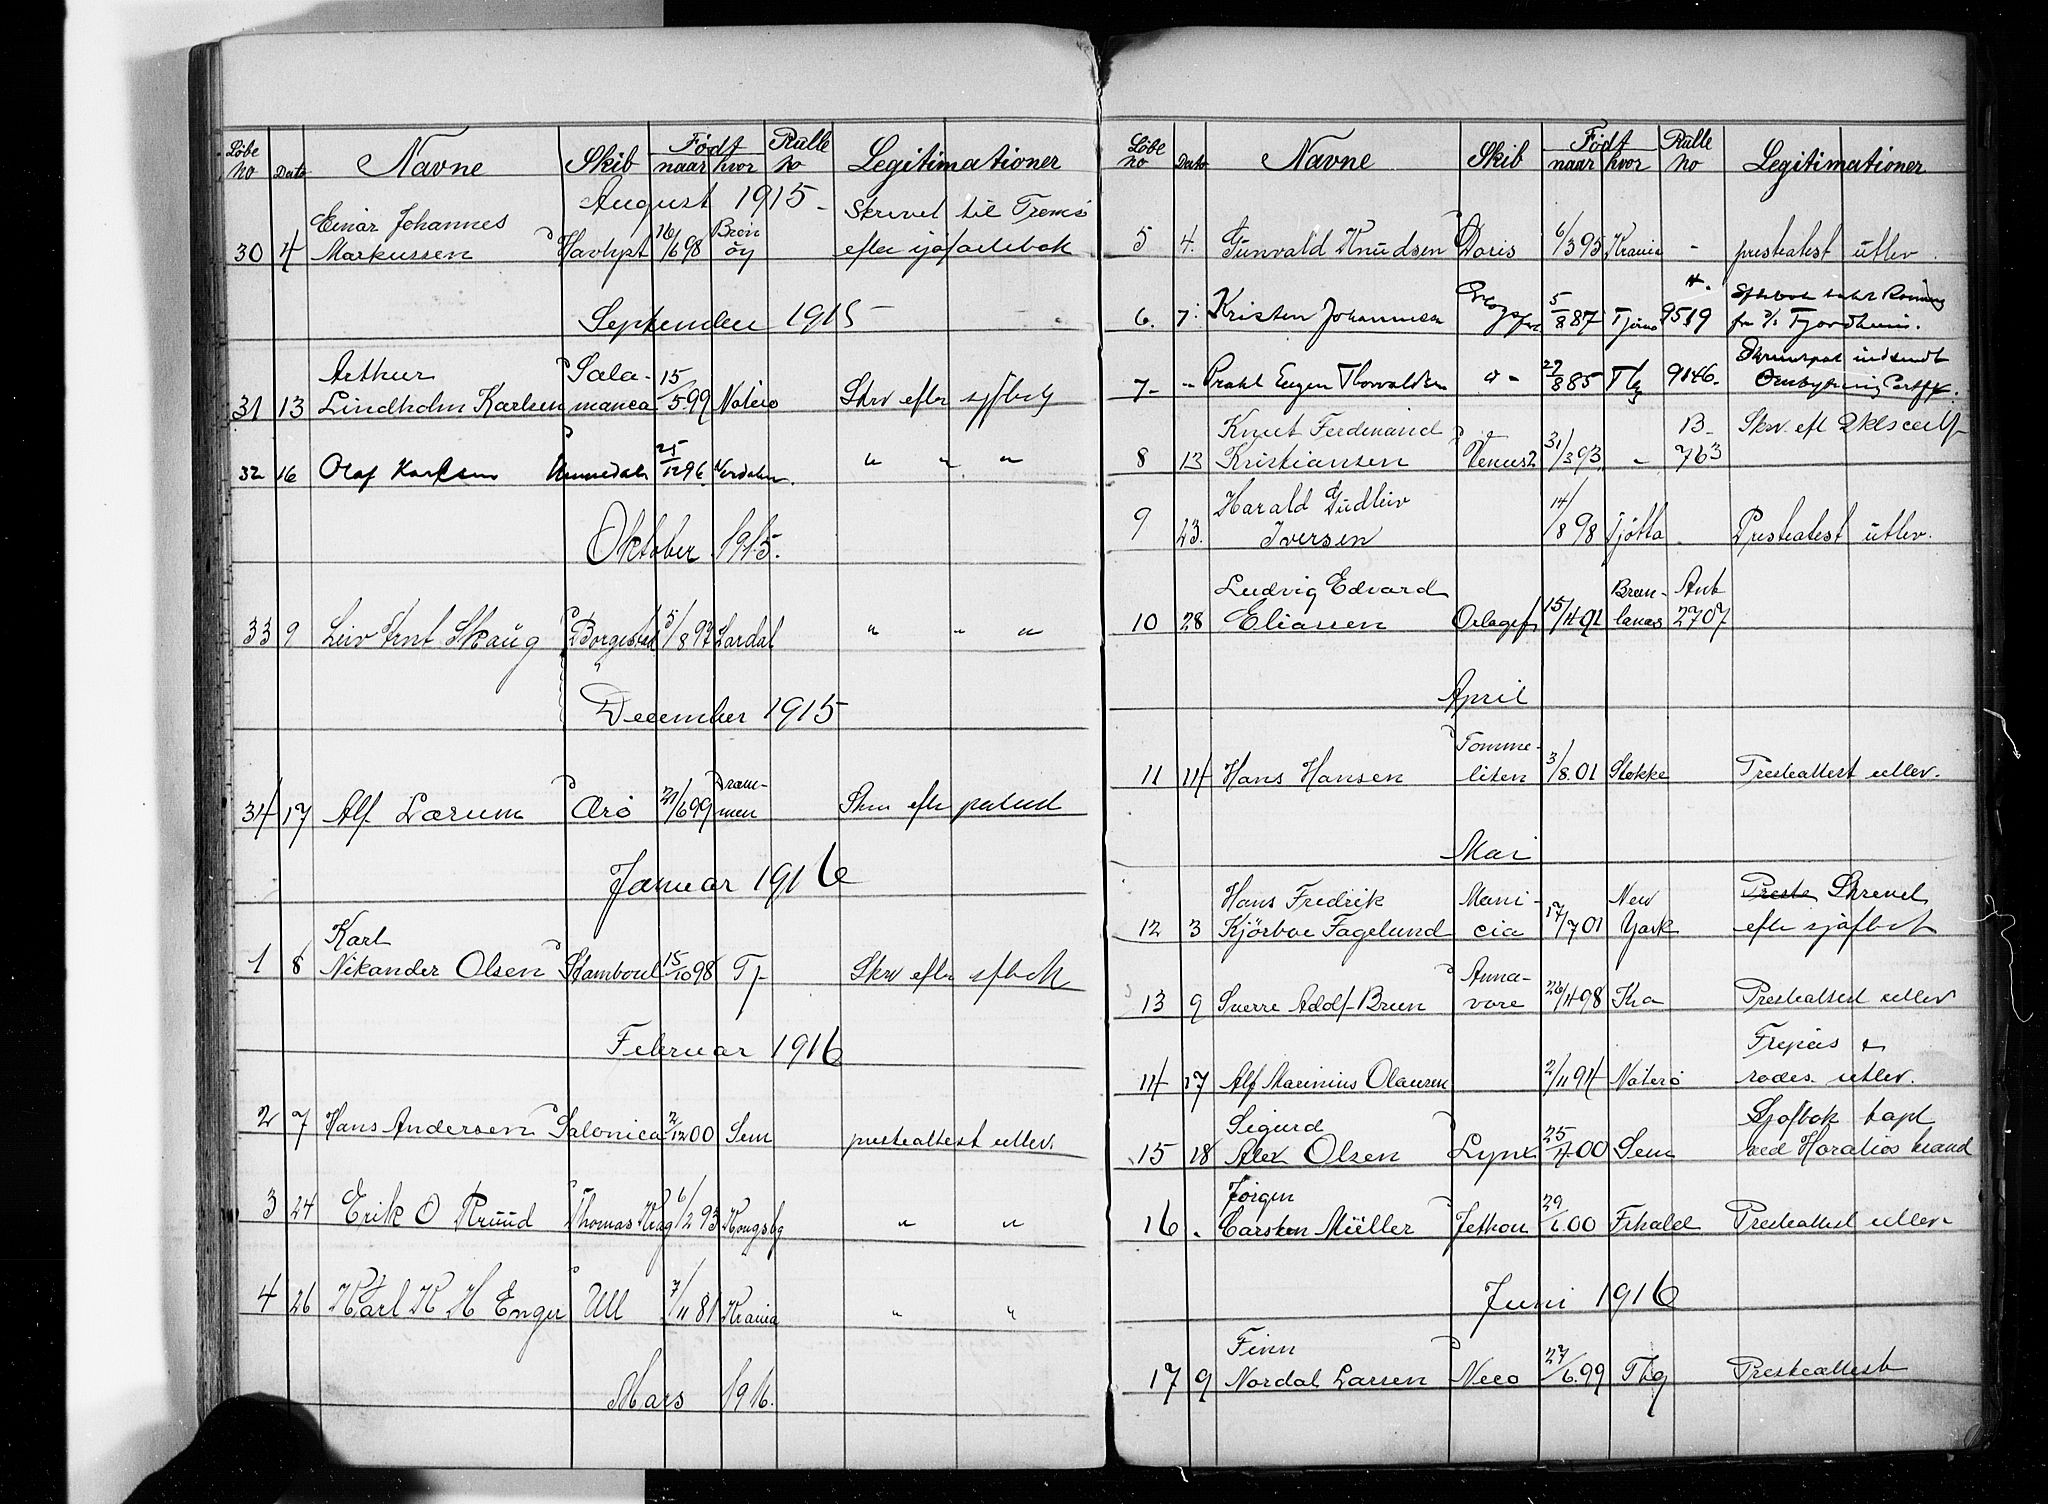 Løbe no Dato Navne Skib Født naar hvor Rulle no Legitimationer
August 1915 - Skrevet til Tromsø
Einar Johannes Brøn
30 4 Markussen Havlyst 16/6 98 øy efter sjøfartsbok
September 1915 -
Arthur Sala-
31 13 Lindholm Karlsen manca 15/5 99 Nøterø Skrv efter sjfbog
32 16 Olaf Karlsen 25/12 96 Verdalen. " " "
Oktober 1915.
33 9 Leiv Arnt Skaug Borgestad 5/8 97 Lardal " " "
December 1915
Dram-
34 17 Alf Lærum Ærø 21/6 99 men Skrv efter
Januar 1916
Karl
1 8 Nikander Olsen Stamboul 15/10 98 Tj Skrv efter sfbok
Februar 1916
2 7 Hans Andersen Salonica 2/12 00 Sem presteattest utlev.
3 24 Erik O Ruud Thomas Krag 6/2 93 Kongsbg " "
4 26 Karl K H Enger Ull 7/11 81 Krania " "
Mars 1916.
Løbe no Dato Navne Skib Født naar hvor Rulle no Legitimationer
5 4. Gunvald Knudsen Doris 6/3 95 Krania - presteatest utlev.
6. 7. Kristen Johannessen 5/8 87 Tjømø 9519
fra Fjordheim.
7 - " Eugen Thorvaldsen " - 27/8 85 Tbg 9146.
Knut Ferdinand B- Skrv. eft
8 13 Kristiansen Venus 2 31/3 93. - 763
Harald Gudleiv
9 23. Iversen 14/8 98 Tjøtta - Presteatest utlev.
Ludvig Edvard Brun- Anb
10 28 Eliassen 15/4 91 lanes 2707
April
Tomme-
11 14 Hans Hansen liten 3/8.01 Stokke Presteattest utlev.
Mai
Hans Fredrik Mani- New Preste Skrevet
12 3 Kjörboe Fagelund cia 17/7 01 York efter sjøfbok
Anna-
13 9 Sverre Adolf Bruun vore 26/4 98 Kra Presteattest utlev
Fripas &
14 17 Alf Marinius Olausen 2/11 94 Nøterø rodes. utlev.
Sigurd Sjøfbok tapt
15 18 Alex Olsen Lynx 25/4 00 Sem ved Horatios brand
Jørgen
16 " Carsten Müller Jethou 29/1.00 Frhald Presteattest utlev
Juni 1916
Finn
17 9 Nordal Larsen Neco 27/6.99 Tbg Presteattest